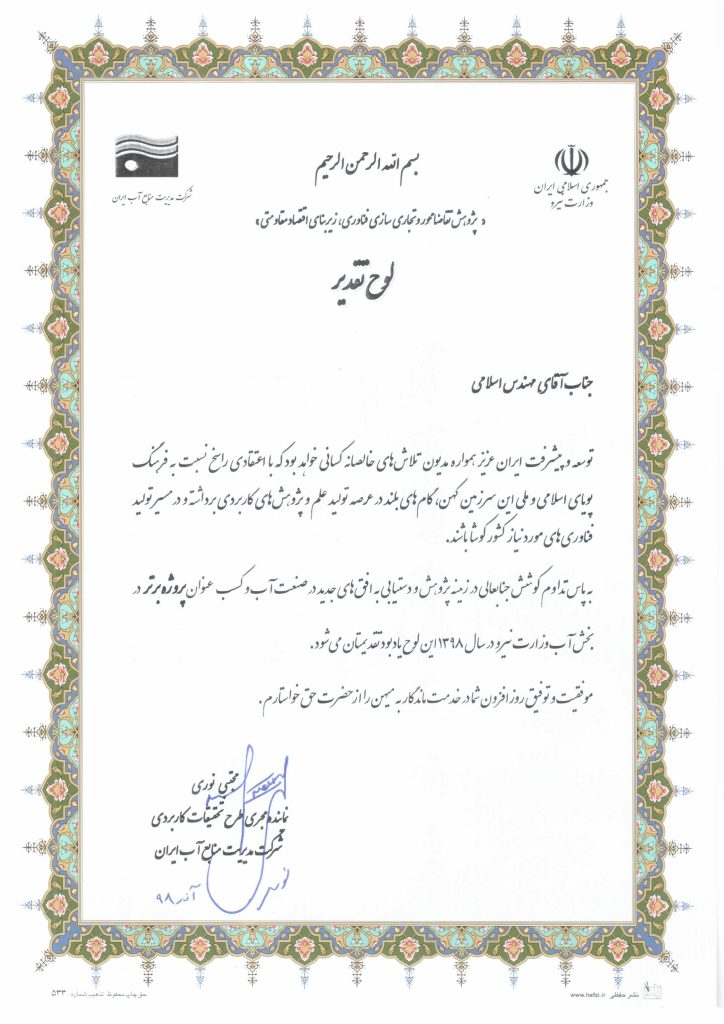 بسم الله الرحمن الرحیم
جمهوری اسلامی ایران
وزارت نیرو
شرکت مدیریت منابع آب ایران
« پژوهش تقاضا محور و تجاری سازی فناوری، زیربنای اقتصاد مقاومتی »
لوح تقدیر
جناب آقای مهندس اسلامی
توسعه و پیشرفت ایران عزیز همواره مدیون تلاش های خالصانه کسانی خواهد بود که با اعتقادی راسخ نسبت به فرهنگ
پویای اسلامی و ملی این سرزمین کهن، گام های بلند در عرصه تولید علم و پژوهش های کاربردی برداشته و در مسیر تولید
فناوری های مورد نیاز کشور کوشا باشند.
به پاس تداوم کوشش جنابعالی در زمینه پژوهش و دستیابی به افق های جدید در صنعت آب و کسب عنوان پروژه برتر در
بخش آب وزارت نیرو در سال ۱۳۹۸ این لوح یادبود تقدیمتان می شود.
موفقیت و توفیق روز افزون شما در خدمت ماندگار به میهن را از حضرت حق خواستارم.
مجتبی نوری
نماینده مجری طرح تحقیقات کاربردی
شرکت مدیریت منابع آب ایران
نوری
آذر ۹۸
نشر حفظی www.hefzi.ir
حق چاپ محفوظ تذهیب شماره ۵۳۳